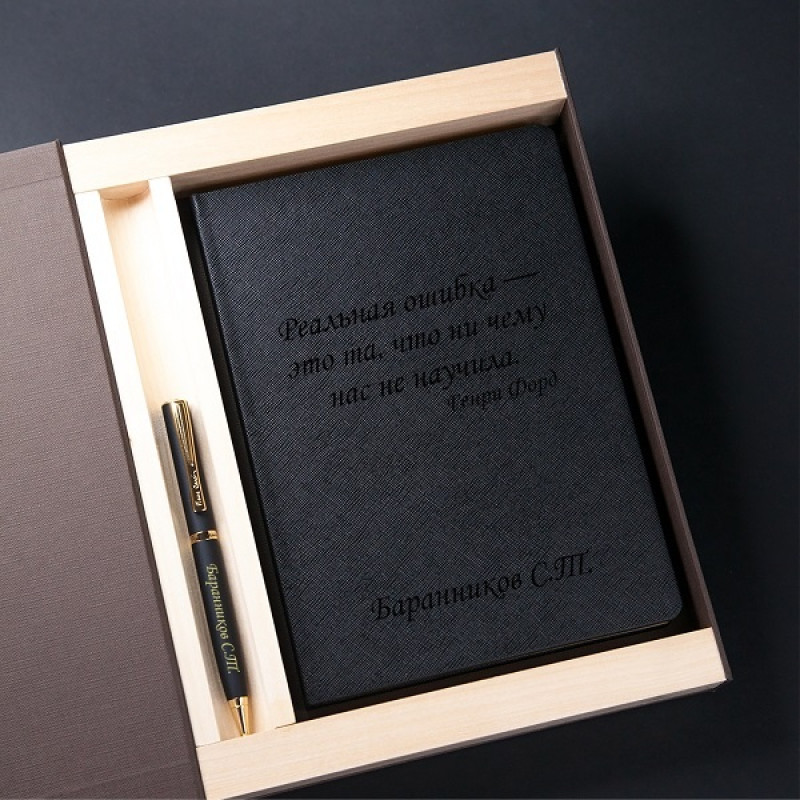 Реальная ошибка —
это та, что ни чему
нас не научила.
Генри Форд
Баранников С.Т.
Pierre Cardin
Баранников С.Т.